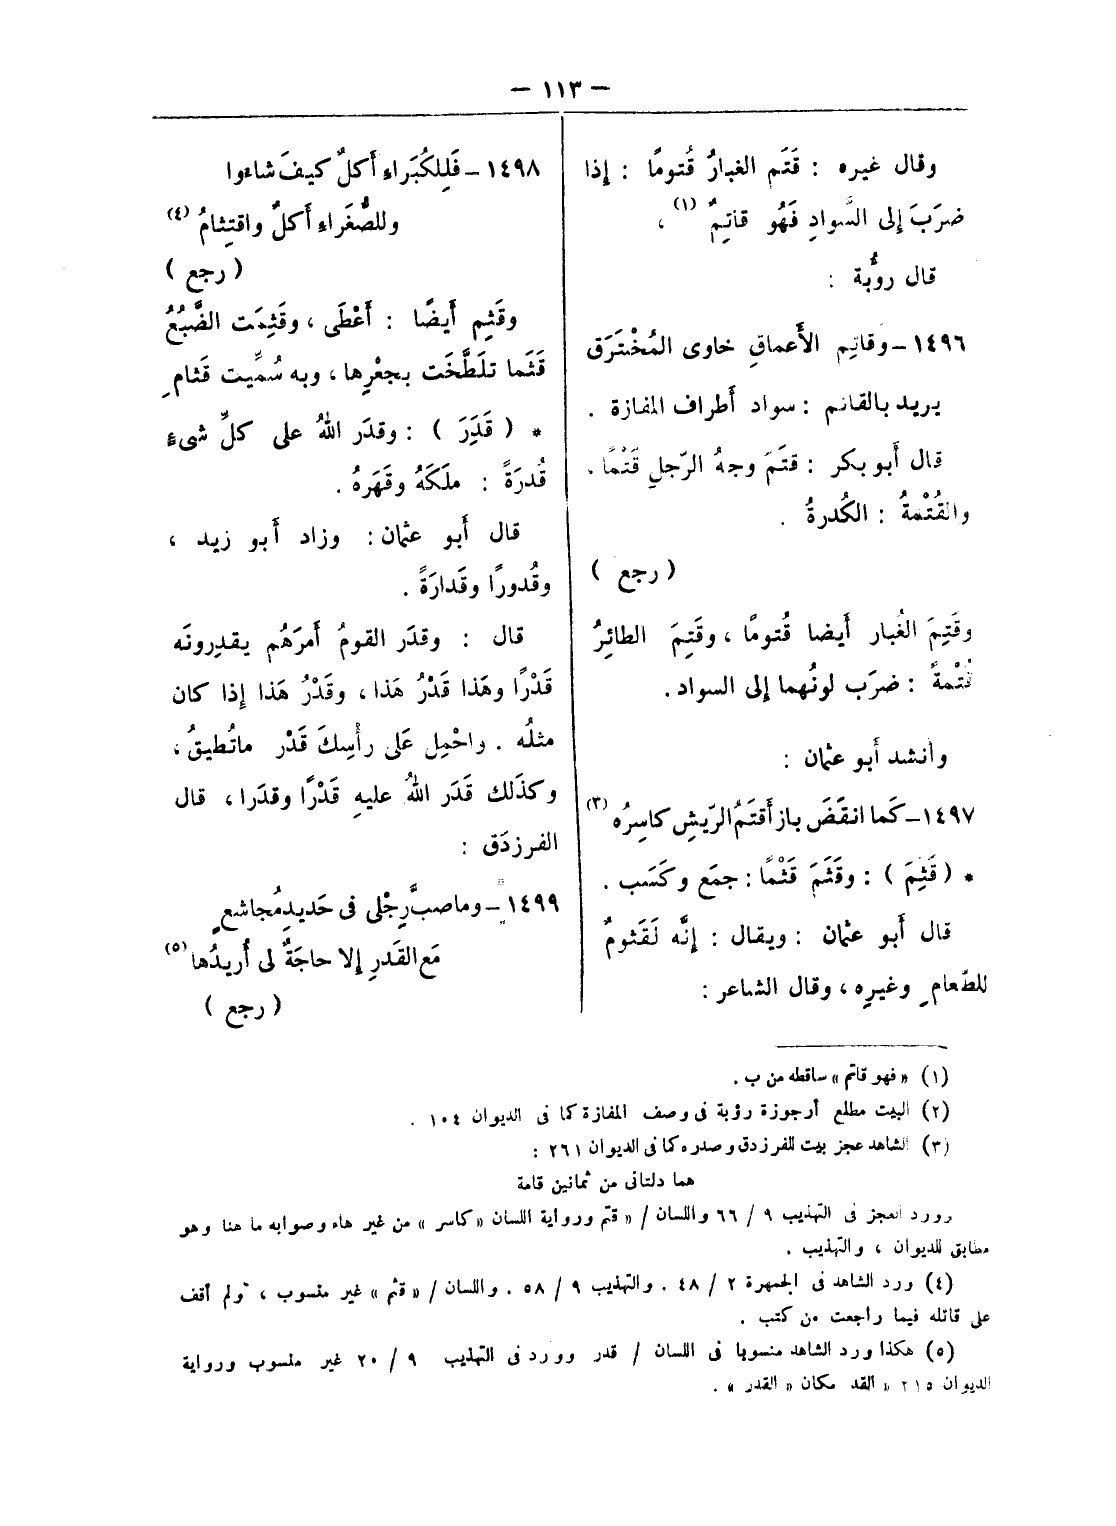 – ١١٣ –
وقال غيره : قَتَم الغبارُ قُتومًا : إذا
ضرَبَ إلى السَّوادِ فَهُو قاتِمٌ (١) ،
قال روُّبة :
١٤٩٦ – وقاتِم الأَعماقِ خاوى المُخْترَق
يريد بالقاتم : سواد أَطراف المفازة .
قال أَبو بكر : قتَمَ وجهُ الرّجلِ قَتْمًا .
والقُتْمةُ : الكُدرةُ .
( رجع )
وقَتِمَ الغُبار أَيضا قُتومًا ، وقَتِمَ الطائِرُ
قُتْمةً : ضرَب لونُهما إلى السواد .
وأنشد أَبو عثمان :
١٤٩٧ – كَما انقَضَ باز أَقتَمُ الرّيشِ كاسِرُه (٣)
* ( قَثِمَ ) : وقَثَمَ قَثْمًا : جمَع وكَسَب .
قال أَبو عثمان : ويقال : إنَّه لَقَثومٌ
للطّعامِ وغيرِه ، وقال الشاعر :
١٤٩٨ – فَلِلكُبَراءِ أَكلٌ كيفَ شاءوا
وللصُّغَراءِ أَكلٌ واقتِثامُ (٤)
( رجع )
وقَثِم أَيضًا : أَعْطَى ، وقَثِمَت الضَّبُعُ
قَثَما تلَطَّخَت بجعْرِها ، وبه سُمِّيت قَثامِ
* ( قَدَِرَ ) : وقدَر اللهُ على كلِّ شىءٍ
قُدرَةً : ملَكَهُ وقَهَرهُ .
قال أَبو عثمان : وزاد أَبو زيد ،
وقُدورًا وقَدارَةً .
قال : وقدَر القومُ أَمرَهُم يقدِرونَه
قَدْرًا وهَذا قَدْرُ هَذا ، وقَدْرُ هَذا إذا كان
مثلُه . واحْمِل عَلى رأْسِكَ قَدْر ماتُطيقُ ،
وكذَلك قَدَر اللهُ عليهِ قَدْرًا وقدَرا ، قال
الفرزدَق :
١٤٩٩ – وما صبَّ رِجْلى فى حَديدِ مُجاشعٍ
مَع القَدرِ إلا حاجَةٌ لى أُريدُها (٥)
( رجع )
(١) « فهو قاتم » ساقطه من ب .
(٢) البيت مطلع أرجوزة رؤبة فى وصف المفازة كما فى الديوان ١٠٤ .
(٣) الشاهد عجز بيت للفرزدق وصدره كما فى الديوان ٢٦١ :
هما دلتانى من ثمانين قامة
وورد العجز فى التهذيب ٩ / ٦٦ واللسان / « قتم ورواية اللسان « كاسر » من غير هاء وصوابه ما هنا وهو
مطابق للديوان ، والتهذيب .
(٤) ورد الشاهد فى الجمهرة ٢ / ٤٨ . والتهذيب ٩ / ٥٨ . واللسان / « قثم » غير منسوب ، ولم أقف
على قائله فيما راجعت من كتب .
(٥) هكذا ورد الشاهد منسوبا فى اللسان / قدر وورد فى التهذيب ٩ / ٢٠ غير منسوب ورواية
الديوان ٢١٥ « القد مكان « القدر » .